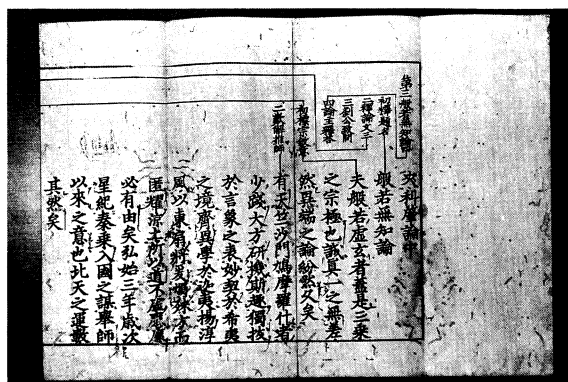 夾科肇論中
第三般若無知論
初標題目
二釋論文二
三劉公致問
四論主釋答
般若無知論
夫般若虛玄者蓋是三乘
之宗極也誠真一之無差
然異端之論紛然久矣
有天竺沙門鳩摩羅什者
少踐大方研機斯趣獨拔
於言象之表妙契於希夷
之境齊異學於迦夷揚淳
風以東扇將爰燭殊方而
匿耀涼土所以道不虛應應
必有由矣弘始三年歲次
星紀秦乘入國之謀舉師
以來之意也北天之運數
其然矣